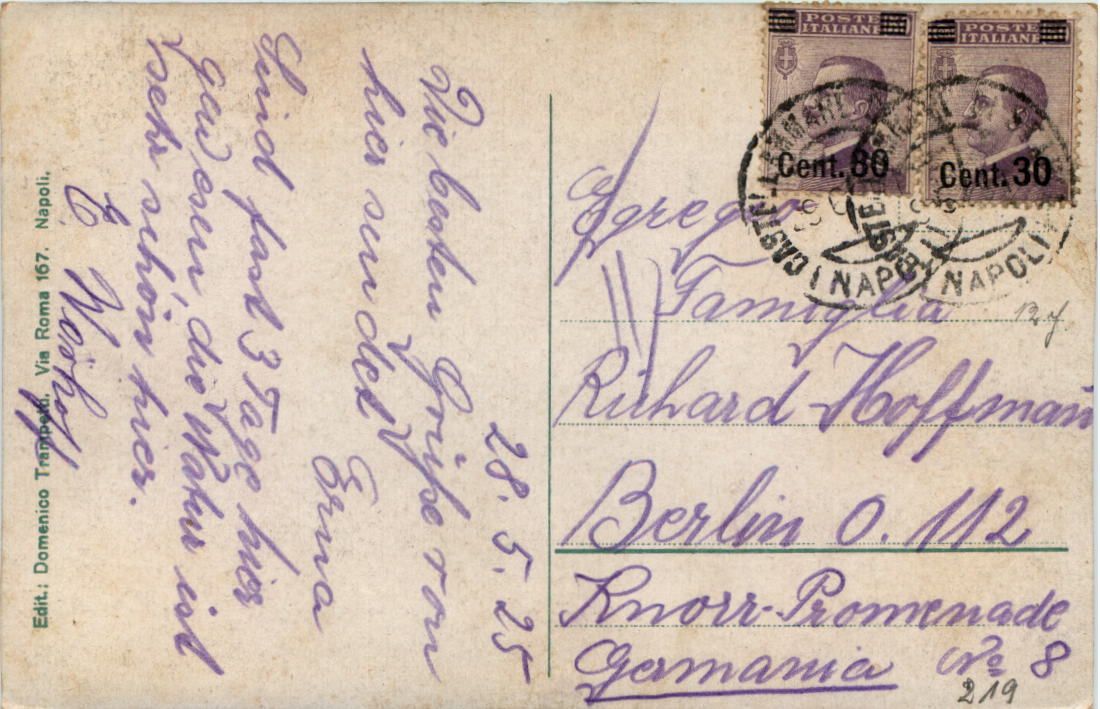 28. 5. 25
Die besten Grüße von
hier sendet
Erna
Sind fast 3 Tage hier
gewesen, die Natur ist
sehr schön hier.
E.
Edit.: Domenico Trampetti, Via Roma 167. Napoli.
POSTE
ITALIANE
Cent. 30
POSTE
ITALIANE
Cent. 30
CASTELLAMMARE
NAPOLI
CASTELLAMMARE
NAPOLI
Egregio
Famiglia
Richard Hoffmann
Berlin O. 112
Knorr-Promenade
Germania No 8
219